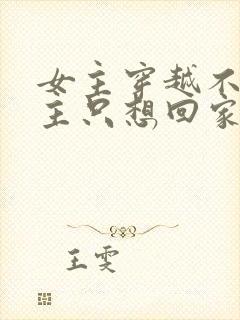 女主穿越不
主只想回家
王雯